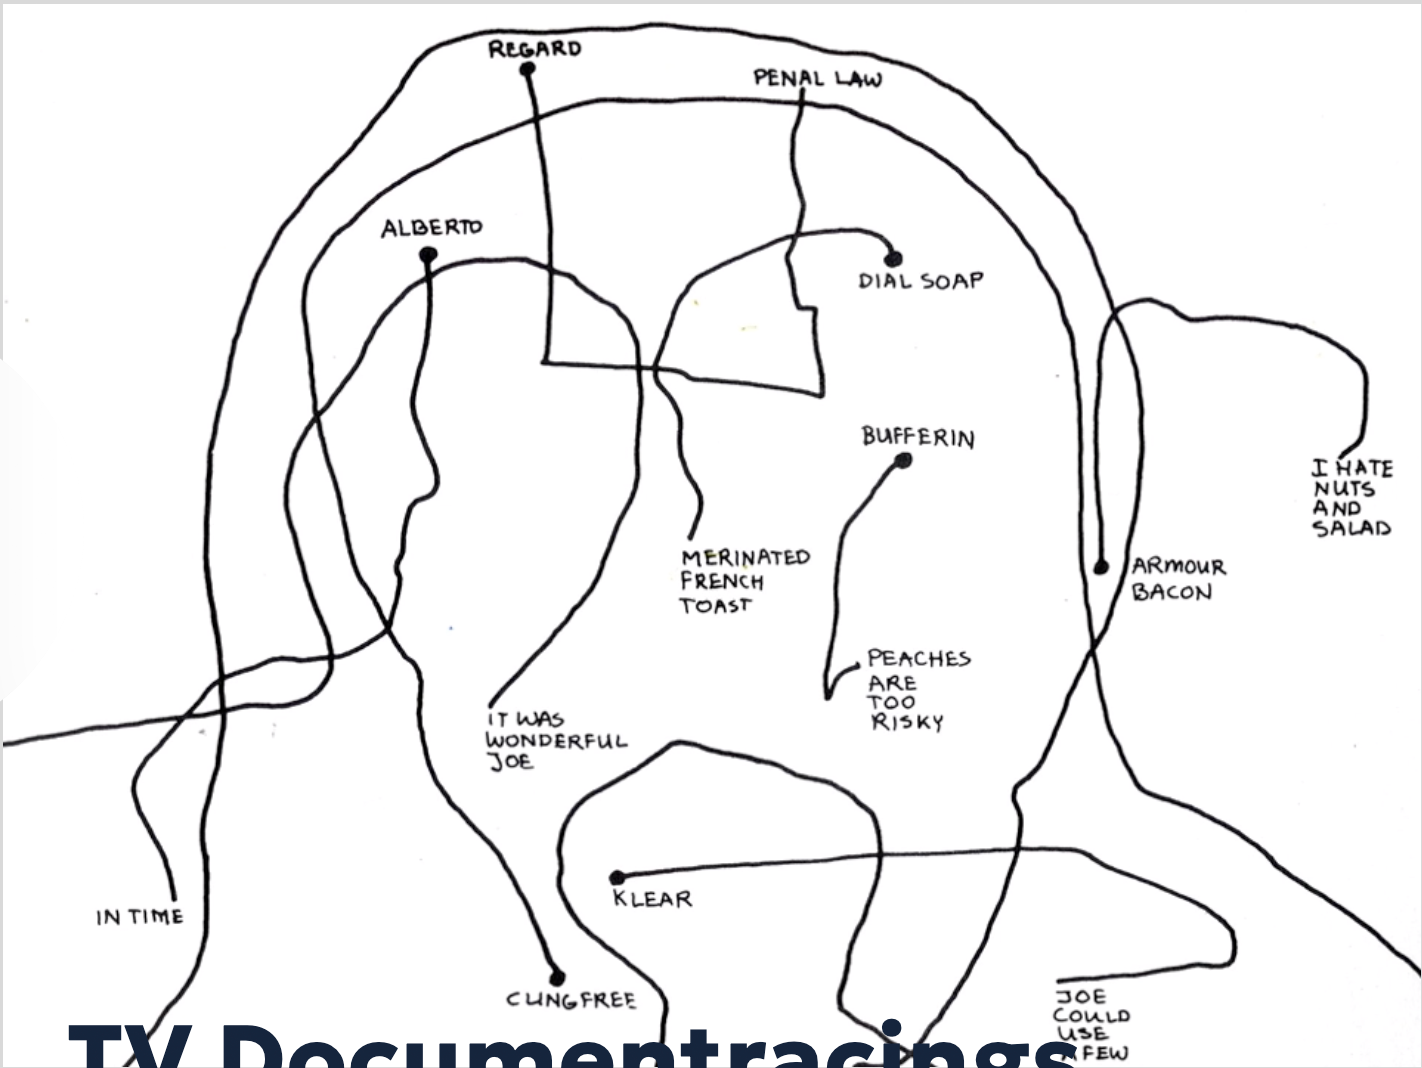 REGARD
PENAL LAW
ALBERTO
DIAL SOAP
BUFFERIN
I HATE
NUTS
AND
SALAD
MERINATED
FRENCH
TOAST
ARMOUR
BACON
PEACHES
ARE
TOO
RISKY
IT WAS
WONDERFUL
JOE
KLEAR
IN TIME
CLINGFREE
JOE
COULD
USE
A FEW
TV Documentracings